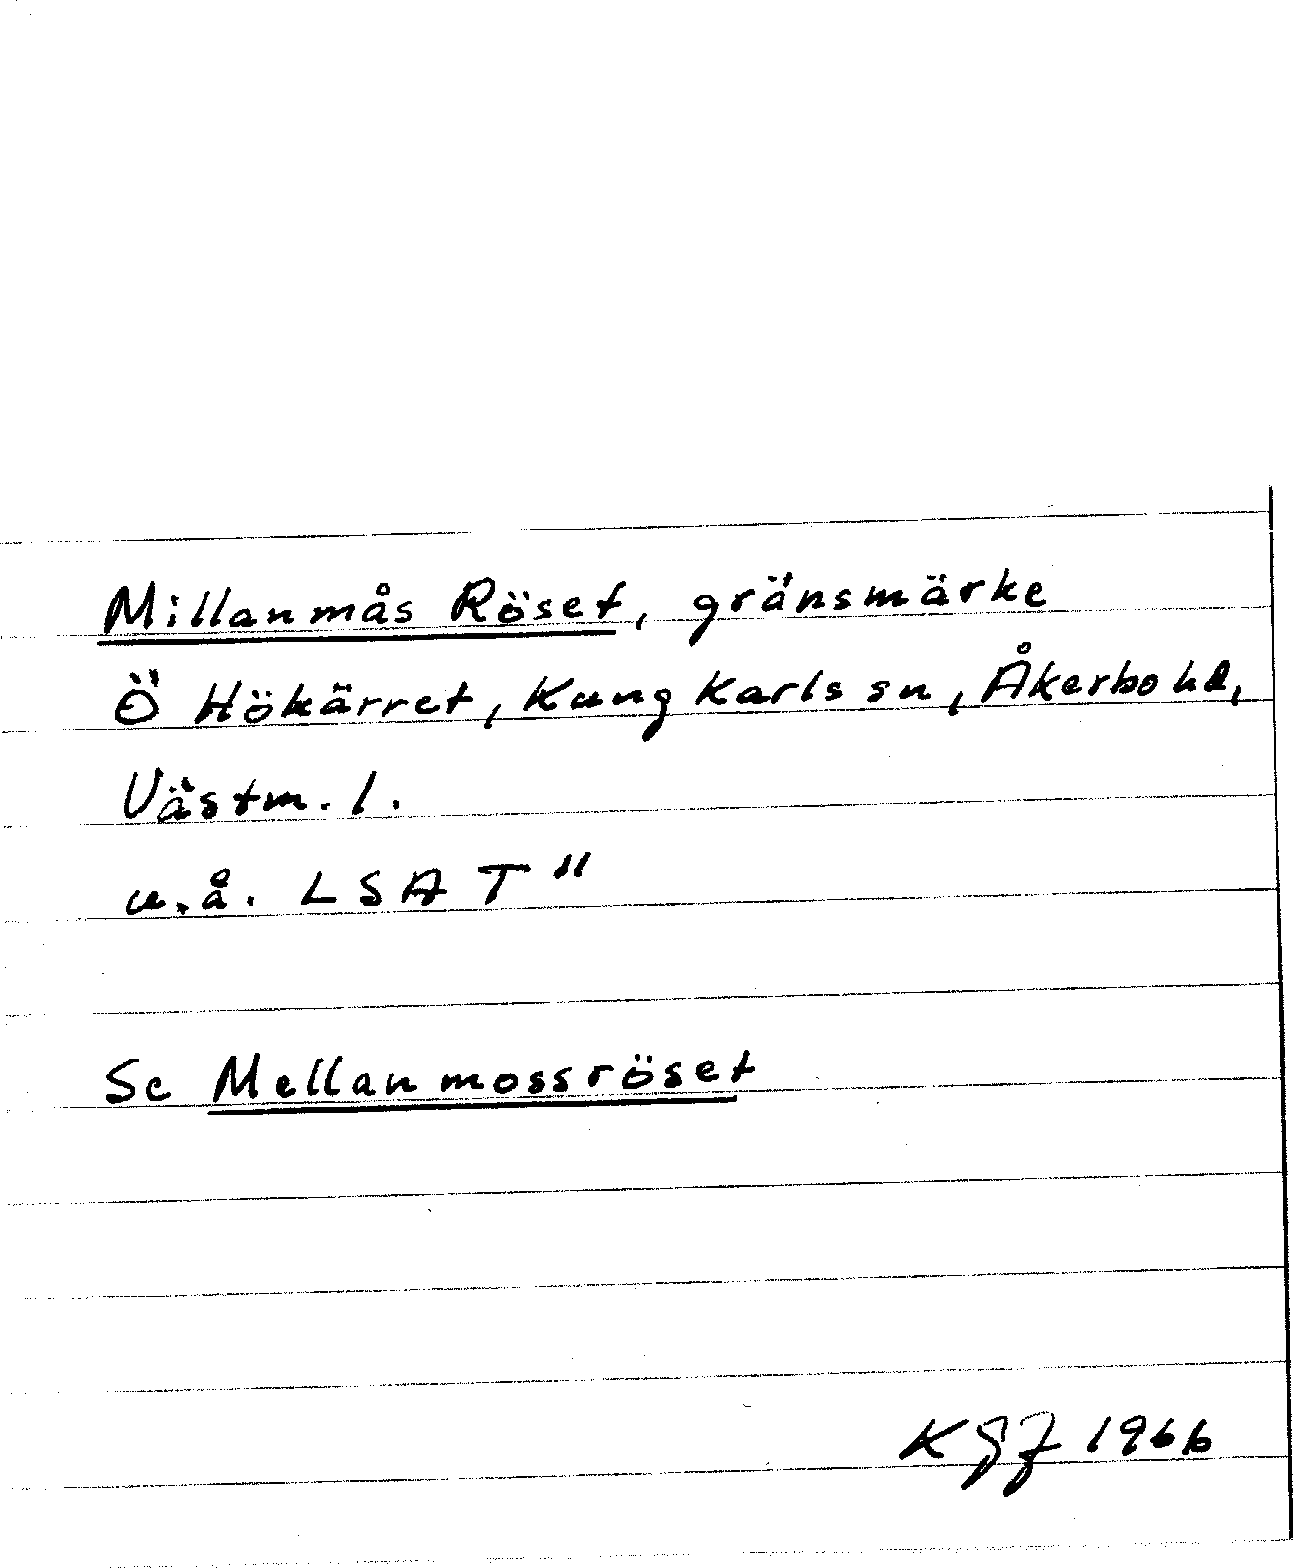 Millanmås Röset, gränsmärke
Ö Hökärret, Kung Karls sn, Åkerbo hd,
Västm. l.
u.å. LSA T"
Se Mellanmossröset
KGJ 1966